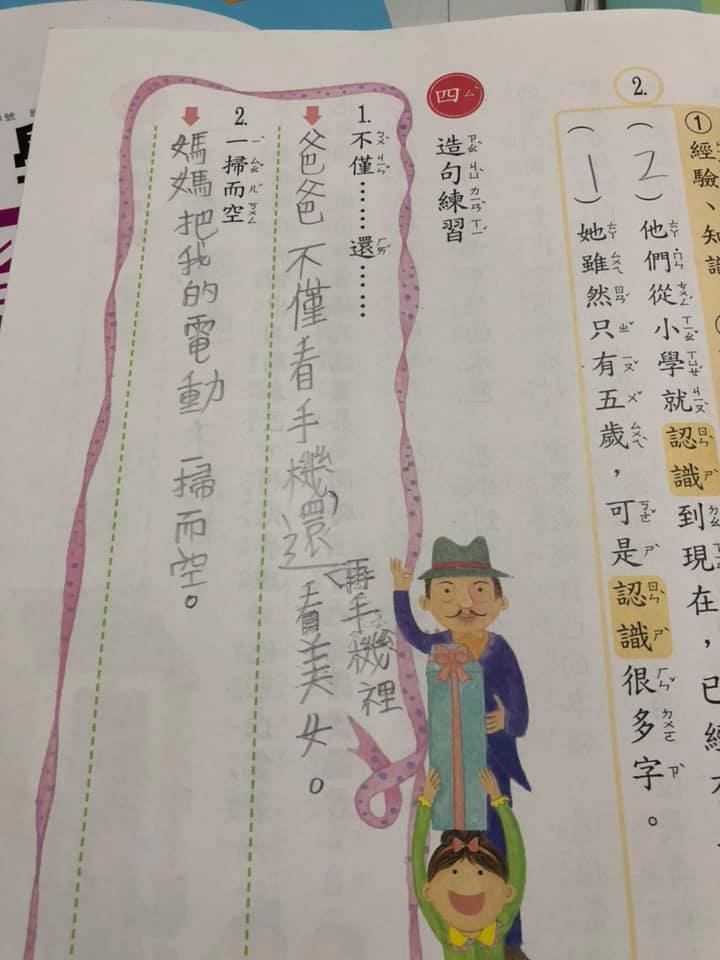 ①
經驗、知識
2.
(2)他們從小學就認識到現在，已經
(1)她雖然只有五歲，可是認識很多字。
四
造句練習
1.不僅……還……
爸爸不僅看手機，還再手機裡看美女。
2.一掃而空
媽媽把我的電動一掃而空。